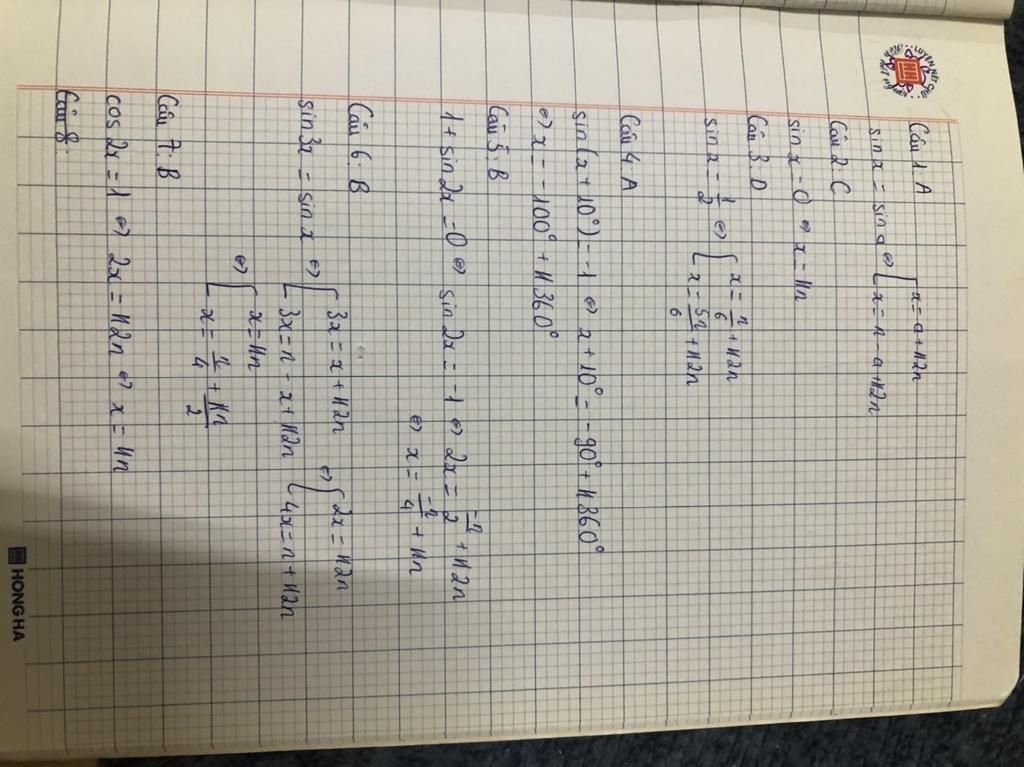 LUYỆN NÉT CHỮ
Câu 1: A
sin x = sin a ⇔ [ x = a + k2π
x = π - a + k2π
Câu 2: C
sin x = 0 ⇔ x = kπ
Câu 3: D
sin x = 1/2 ⇔ [ x = π/6 + k2π
x = 5π/6 + k2π
Câu 4: A
sin(x + 10°) = -1 ⇔ x + 10° = -90° + k360°
⇔ x = -100° + k360°
Câu 5: B
1 + sin 2x = 0 ⇔ sin 2x = -1 ⇔ 2x = -π/2 + k2π
⇔ x = -π/4 + kπ
Câu 6: B
sin 3x = sin x ⇔ [ 3x = x + k2π ⇔ [ 2x = k2π
3x = π - x + k2π 4x = π + k2π
⇔ [ x = kπ
x = π/4 + kπ/2
Câu 7: B
cos 2x = 1 ⇔ 2x = k2π ⇔ x = kπ
Câu 8:
HONGHA